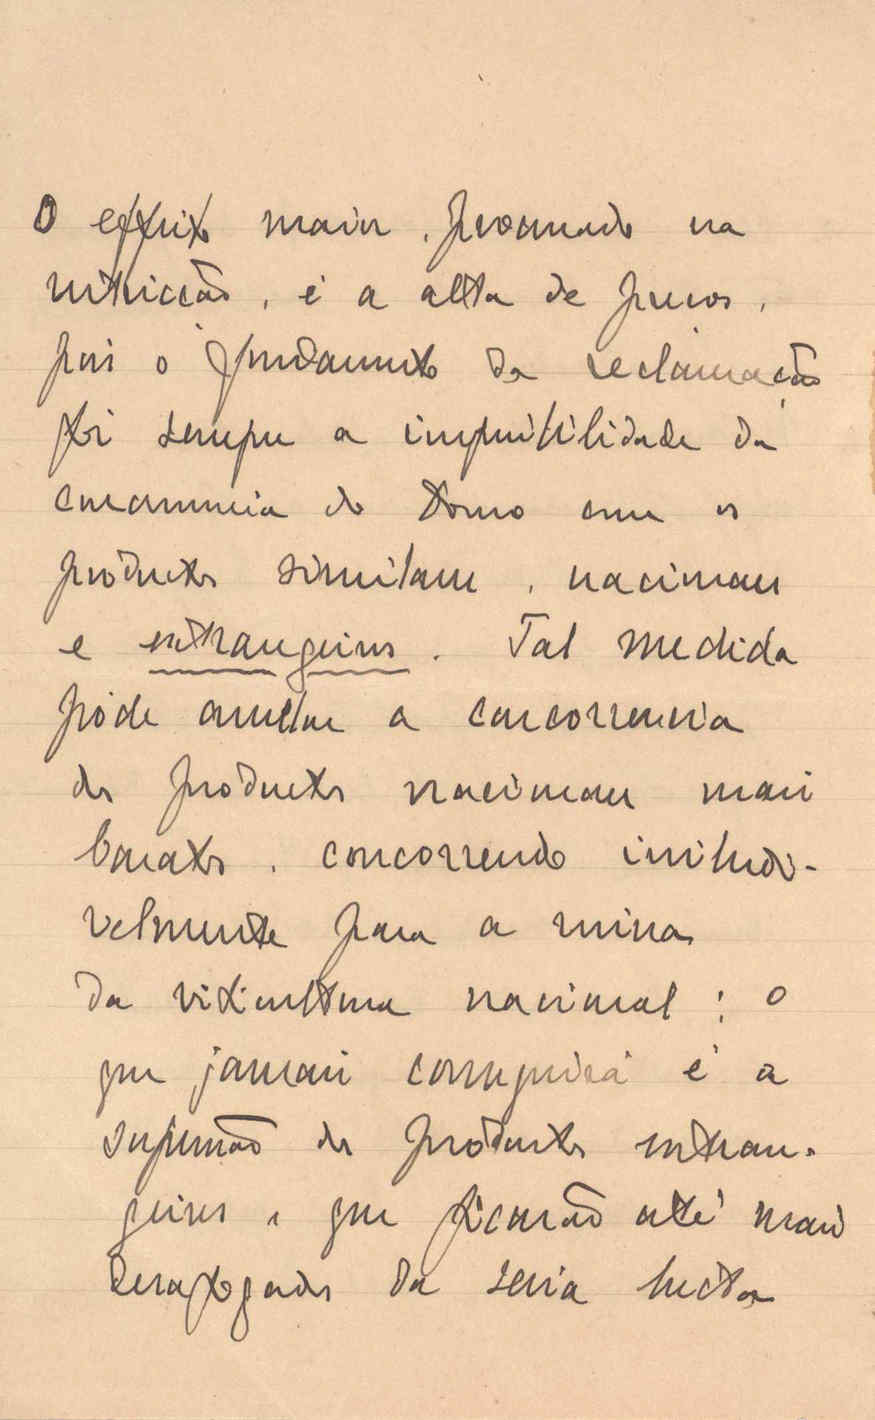 O effeito maior, procurado na
restricção, é a alta de preços,
pois o fundamento da reclamação
foi sempre a impossibilidade da
concorrencia do Douro com os
productos similares, nacionaes
e extrangeiros. Tal medida
póde annullar a concorrencia
de productos nacionaes mais
baratos, concorrendo inilludi-
velmente para a ruina
da viticultura nacional; o
que jamais conseguirá é a
supressão de productos extran-
geiros, que ficarão até mais
desafogados da seria lucta